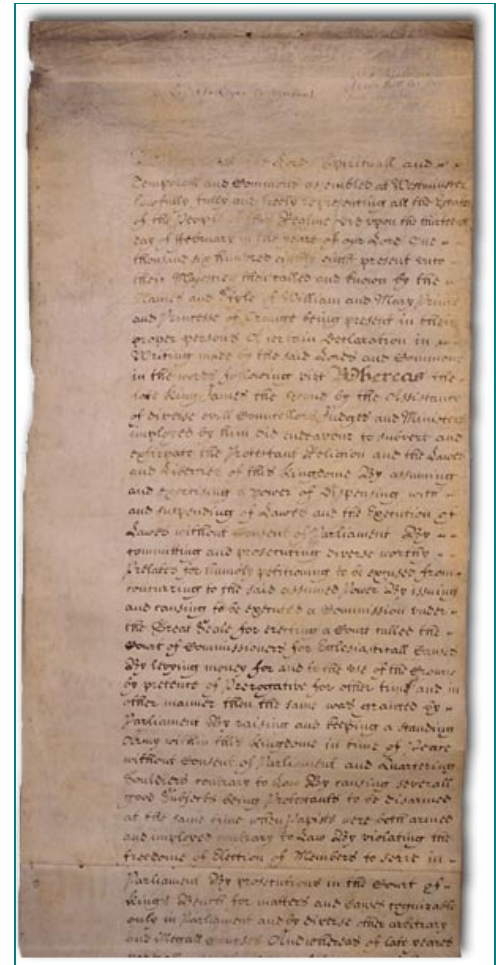 Lords Spirituall and
Temporall and Commons assembled at Westminster
lawfully fully and freely representing all the Estates
of the People of this Realme did upon the thirteenth
day of February in the yeare of our Lord One
thousand six hundred eighty eight present unto
their Majesties then called and known by the
Names and Stile of William and Mary Prince
and Princesse of Orange being present in their
proper persons A certain Declaration in
Writing made by the said Lords and Commons
in the words following vizt Whereas the
late King James the second by the Assistance
of diverse evill Councellors Judges and Ministers
imployed by him did endeavour to subvert and
extirpate the Protestant Religion and the Lawes
and Liberties of this Kingdome By assuming
and exercising a power of dispensing with
and suspending of Lawes and the Execution of
Lawes without Consent of Parliament By
committing and prosecuting diverse worthy
Prelates for humbly petitioning to be excused from
concurring to the said assumed Power By issueing
and causing to be executed a Commission under
the Great Seale for erecting a Court called the
Court of Commissioners for Ecclesiasticall Causes
By levying money for and to the use of the Crowne
by pretence of Prerogative for other time and in
other manner then the same was granted by
Parliament By raising and keeping a standing
Army within this Kingdome in time of Peace
without Consent of Parliament and Quartering
Souldiers contrary to Law By causing severall
good Subjects being Protestants to be disarmed
at the same time when Papists were both armed
and imployed contrary to Law By violating the
freedome of Election of Members to serve in
Parliament By prosecutions in the Court of
Kings Bench for matters and causes cognizable
only in Parliament and by diverse other arbitrary
and illegall courses And whereas of late yeares